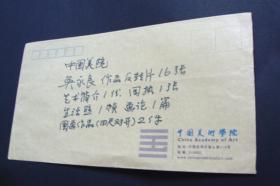 中国美院
吴永良 作品反转片16张
艺术简介1份 国执1张
生活照1帧 画论1篇
国画作品(四尺对开)2件
中國美術學院
China Academy of Art